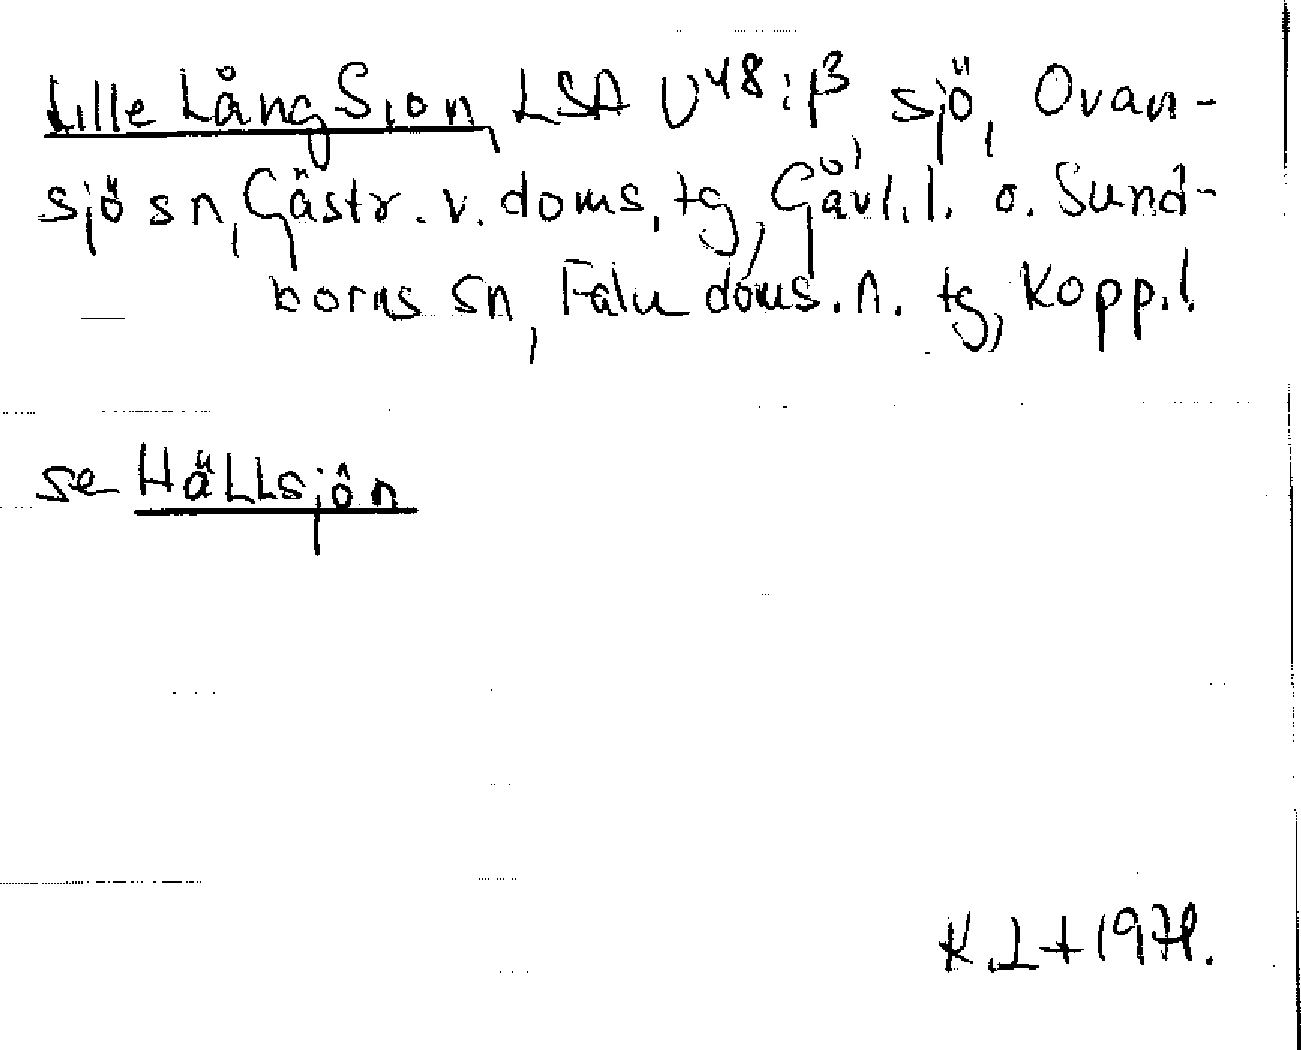 Lille Lång Sion, LSA U48:β, sjö, Ovan-
sjö sn, Gästr. v. doms. tg, Gävl. l. o. Sund-
borns sn, Falu doms. n. tg, Kopp. l.
se Hällsjön
K.Lt 1971.